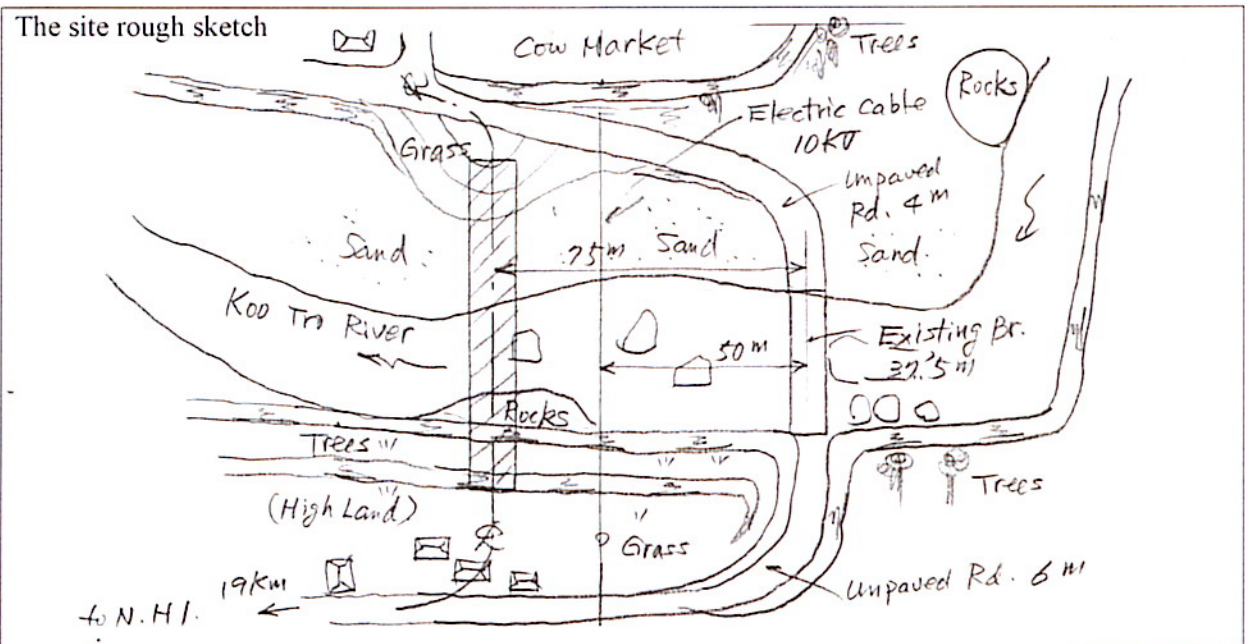 The site rough sketch
Cow Market
Trees
Rocks
Electric Cable
10KV
Grass
Unpaved
Rd. 4m
Sand
75m
Sand
Sand
Koo Tro River
50m
Existing Br.
37.5m
Rocks
Trees
Trees
(High Land)
Grass
Unpaved Rd. 6m
19Km
to N.H1.